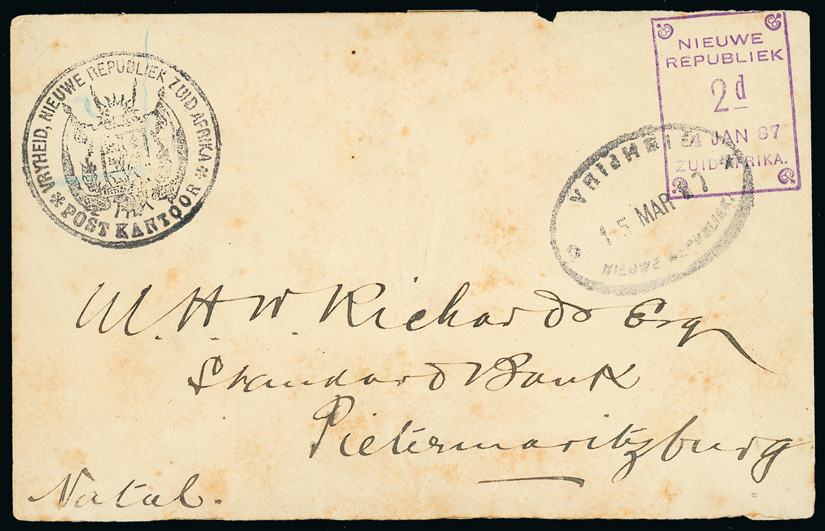 VRYHEID, NIEUWE REPUBLIEK ZUID AFRIKA
* POST KANTOOR *
NIEUWE
REPUBLIEK
2d
4 JAN 87
ZUID-AFRIKA.
VRIJHEID
15 MAR 87
NIEUWE REPUBLIEK
M. H. W. Richards Esq
Standard Bank
Pietermaritzburg
Natal.